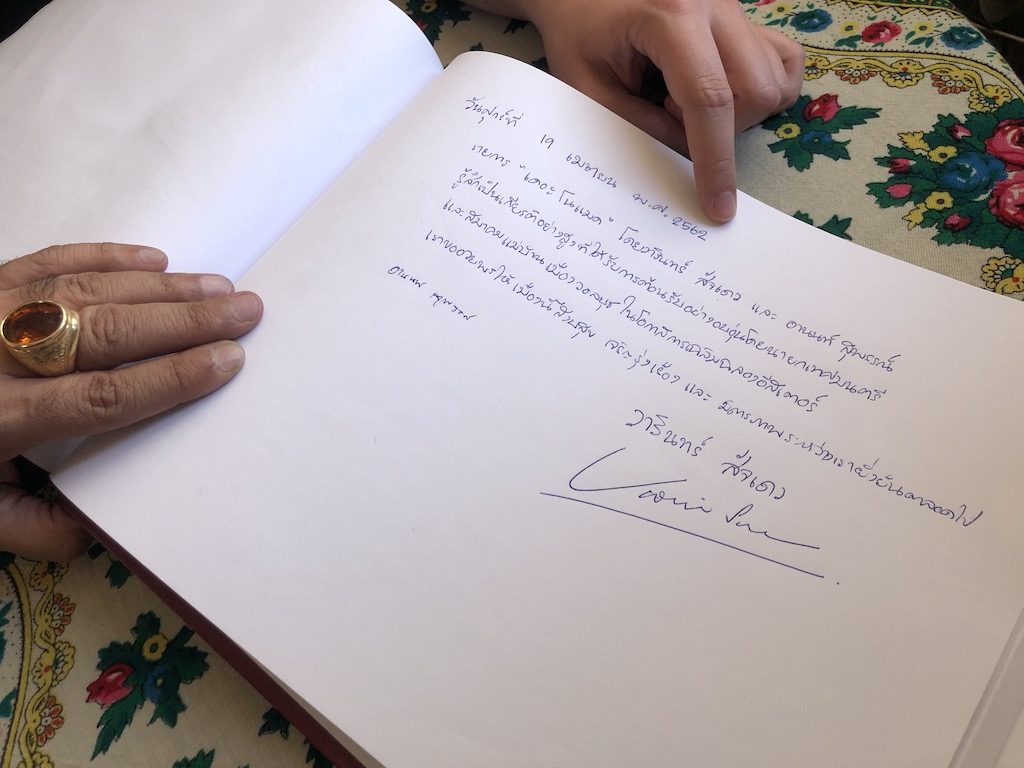 วันศุกร์ที่ 19 เมษายน พ.ศ. 2562
รายการ "เดอะโนแมด" โดยวารินทร์ สัจเดว และ อานนท์ สุพรรณ์
รู้สึกเป็นเกียรติอย่างสูงที่ได้รับการต้อนรับอย่างอบอุ่นโดยนายกเทศมนตรี
และสมาคมแม่บ้านเมือง ในโอกาสการเฉลิมฉลองอีสเตอร์
เราขออวยพรให้เมืองนี้มีความสุข เจริญรุ่งเรือง และ มิตรภาพระหว่างเรายั่งยืนตลอดไป
วารินทร์ สัจเดว